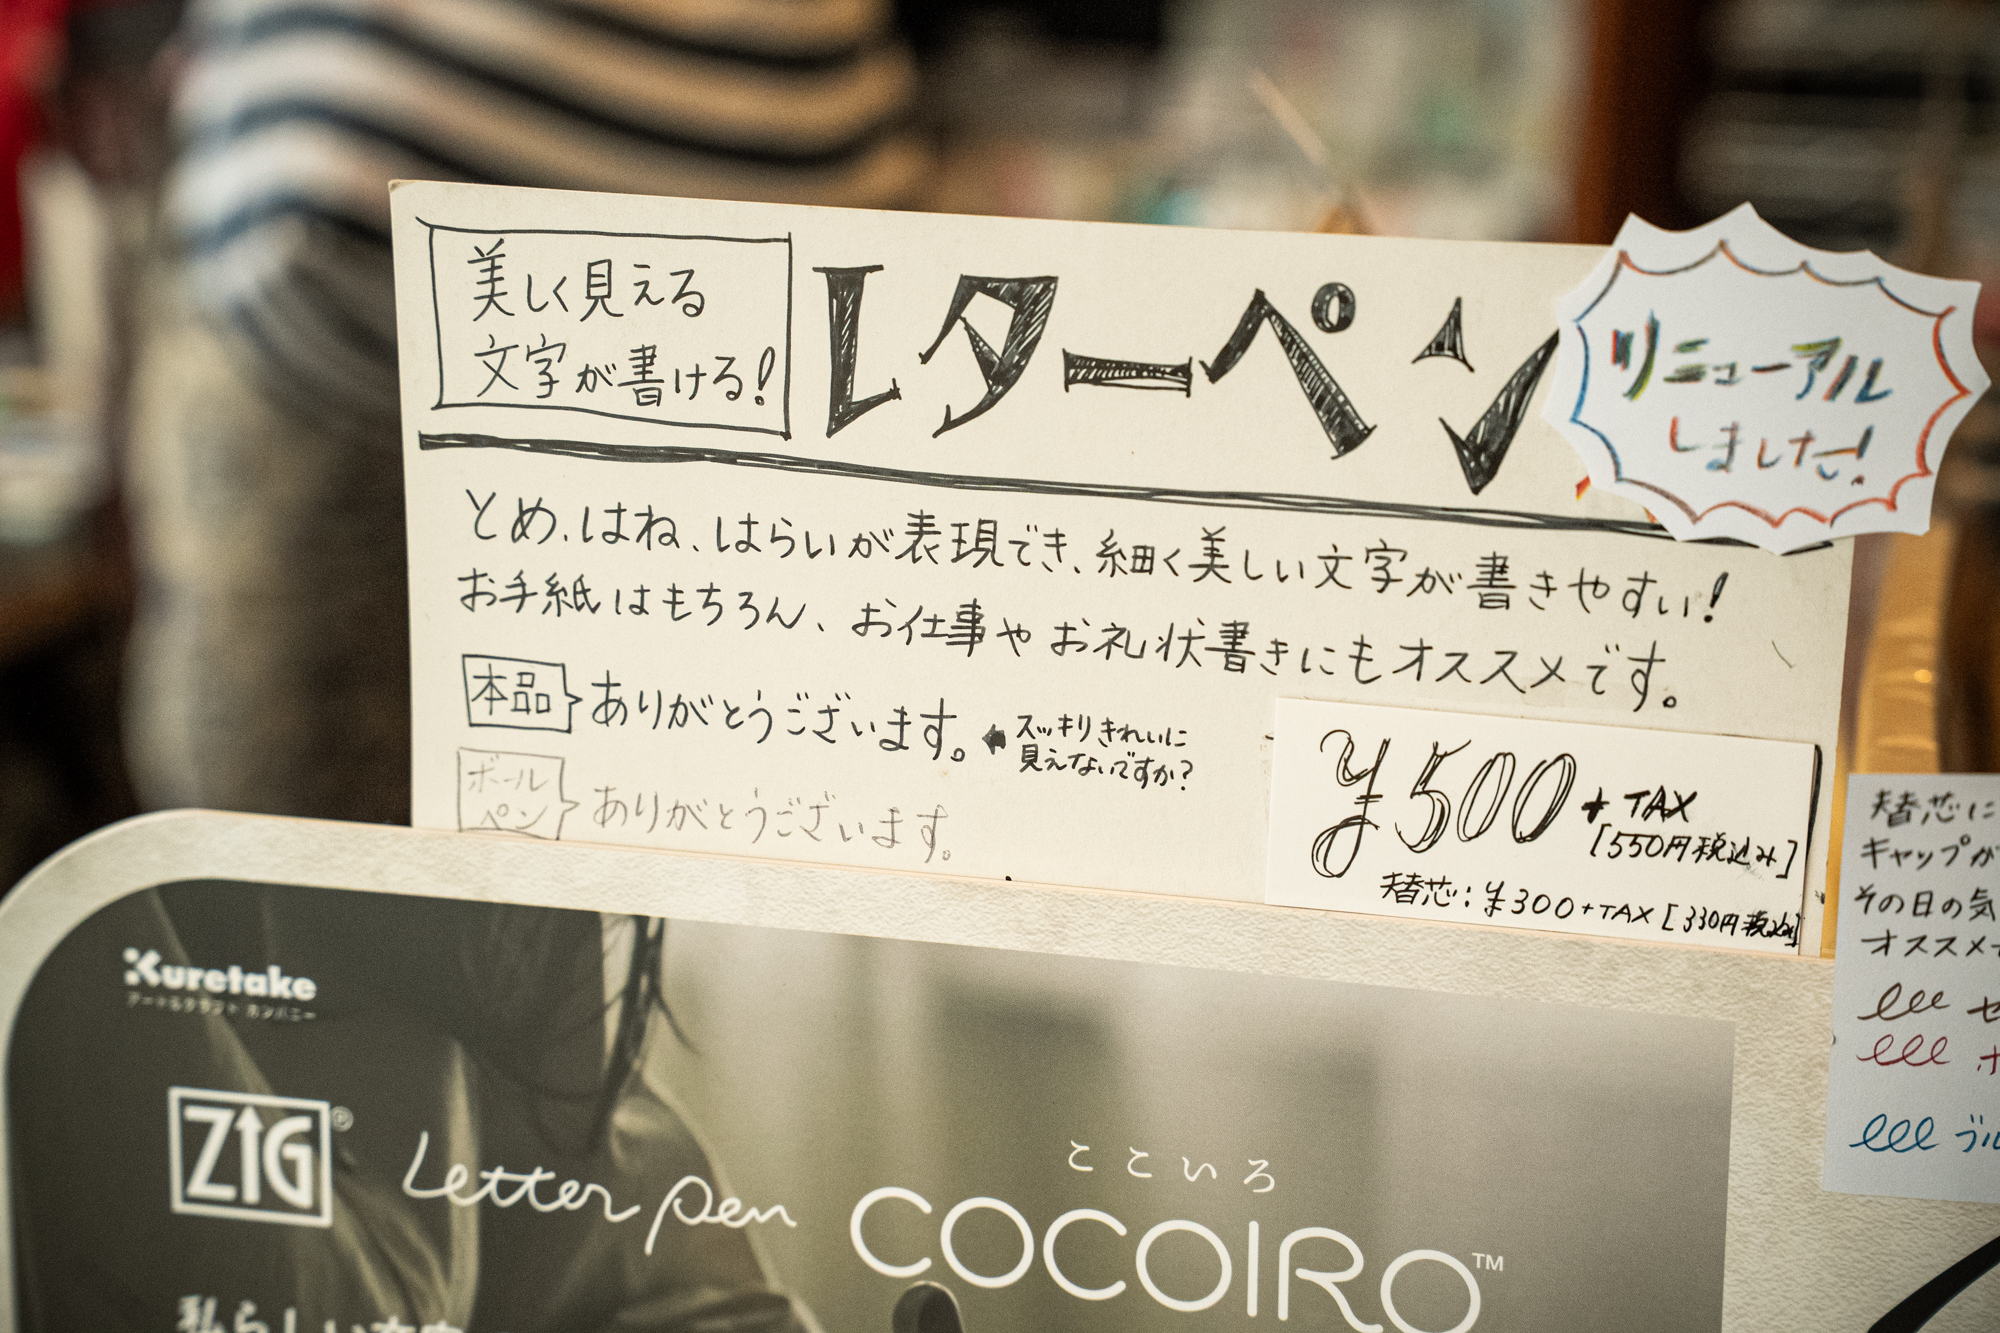 美しく見える
文字が書ける!
レターペン
リニューアル
しました!
とめ、はね、はらいが表現でき、細く美しい文字が書きやすい!
お手紙はもちろん、お仕事やお礼状書きにもオススメです。
本品
ありがとうございます。
スッキリきれいに
見えないですか?
ボール
ペン
ありがとうございます。
¥500+TAX
[550円税込み]
替芯:¥300+TAX [330円税込]
替芯に
キャップが
その日の気
オススメ
セ
ボ
ブル
Kuretake
アート&クラフト カンパニー
ZIG®
Letter pen
こころいろ
COCOIRO™
私らしい文字